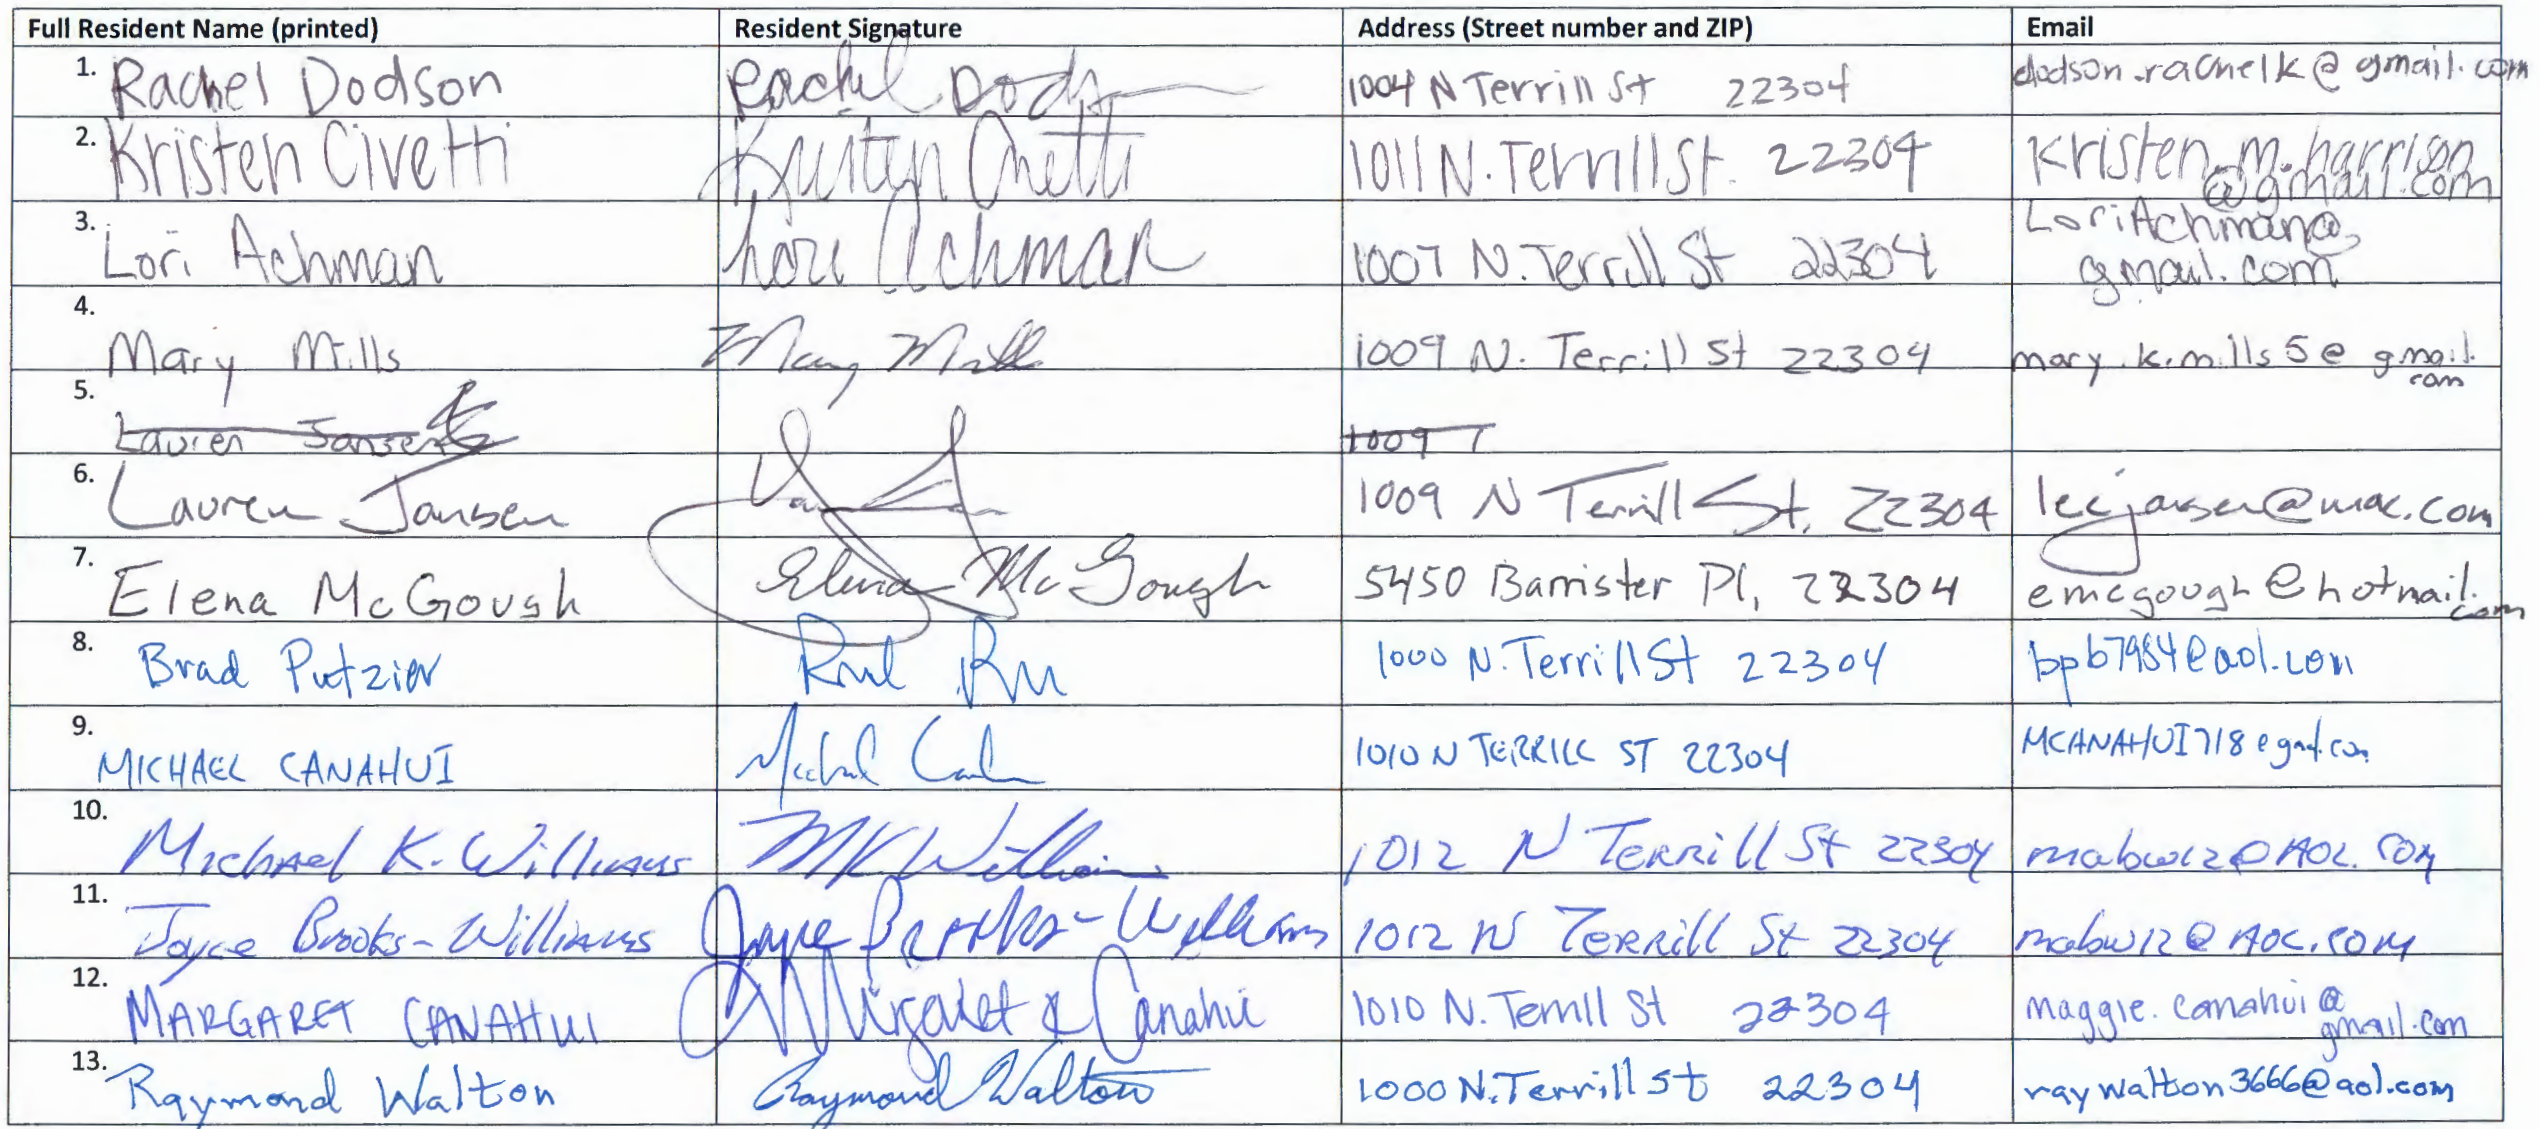 Full Resident Name (printed) Resident Signature Address (Street number and ZIP) Email
1. Rachel Dodson Rachel Dods 1004 N Terrill St 22304 dodson.rachelk@gmail.com
2. Kristen Civetti Kristen Civetti 1011 N. Terrill St. 22304 Kristen.m.harrison
@gmail.com
3. Lori Achman Lori Achman 1007 N. Terrill St 22304 LoriAchman@
gmail.com
4. Mary Mills Mary Mills 1009 N. Terrill St 22304 mary.k.mills5@gmail.
com
5. Lauren Jansen 1009 T
6. Lauren Jansen 1009 N Terrill St, 22304 lecjansen@mac.com
7. Elena McGough Elena McGough 5450 Barrister Pl, 22304 emcgough@hotmail.
com
8. Brad Putzier 1000 N. Terrill St 22304 bpb7984@aol.com
9. MICHAEL CANAHUI Michael 1010 N TERRILL ST 22304 MCANAHUI718@gmail.com
10. Michael K. Williams MK Williams 1012 N Terrill St 22304 mabw12@AOL.COM
11. Joyce Brooks-Williams Joyce Brooks-Williams 1012 N Terrill St 22304 mabw12@AOL.COM
12. MARGARET CANAHUI Margaret Canahui 1010 N. Terrill St 22304 maggie.canahui@
gmail.com
13. Raymond Walton Raymond Walton 1000 N. Terrill St 22304 raywalton3666@aol.com